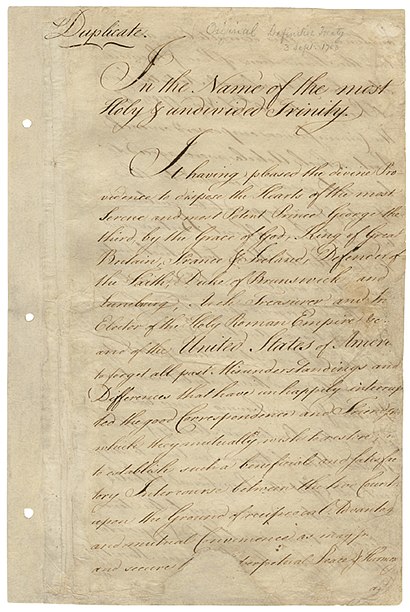 Duplicate.
Original Definitive Treaty
3 Sept. 1783
In the Name of the most
Holy & undivided Trinity.
It having pleased the divine Pro
vidence to dispose the Hearts of the most
Serene and most Potent Prince George the
third, by the Grace of God, King of Great
Britain, France & Ireland, Defender of
the Faith, Duke of Brunswick and
Lunebourg, Arch Treasurer and
Elector of the Holy Roman Empire &c.
and of the United States of Ameri
to forget all past Misunderstandings and
Differences that have unhappily interrup
ted the good Correspondence and Friends
which they mutually wish to restore;
to establish such a beneficial and satisfac
tory Intercourse between the two Count
upon the Ground of reciprocal Advantag
and mutual Convenience as may
and secure perpetual Peace & Harmon